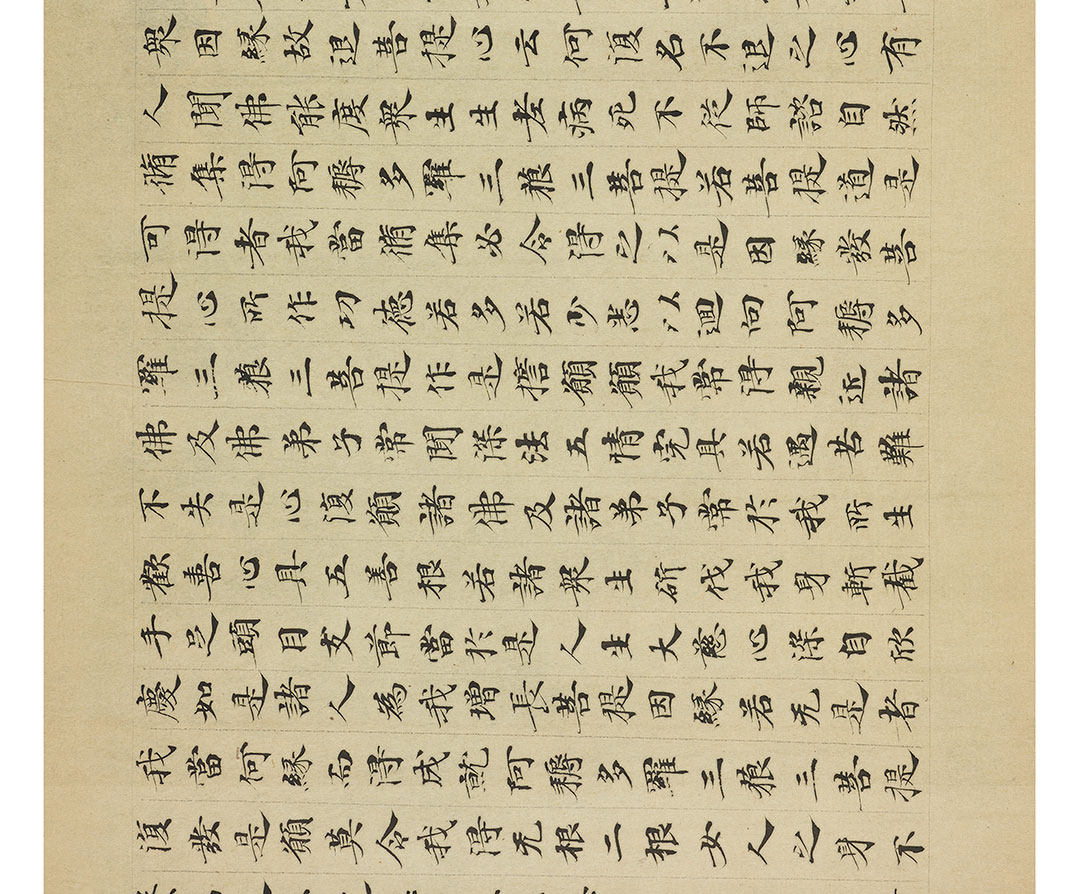 衆因緣故退菩提心云何復名不退之心有
人聞佛能度衆生生老病死不從師諮自然
脩集得阿耨多羅三藐三菩提若菩提道是
可得者我當脩集必令得之以是因緣發菩
提心所作功德若多若少悉以迴向阿耨多
羅三藐三菩提作是誓願願我常得親近諸
佛及佛弟子常聞深法五情完具若遇苦難
不失是心復願諸佛及諸弟子常於我所生
歡喜心具五善根若諸衆生斫伐我身斬截
手足頭目支節當於是人生大慈心深自欣
慶如是諸人為我增長菩提因緣若无是者
我當何緣而得成就阿耨多羅三藐三菩提
復發是願莫令我得无根二根女人之身不